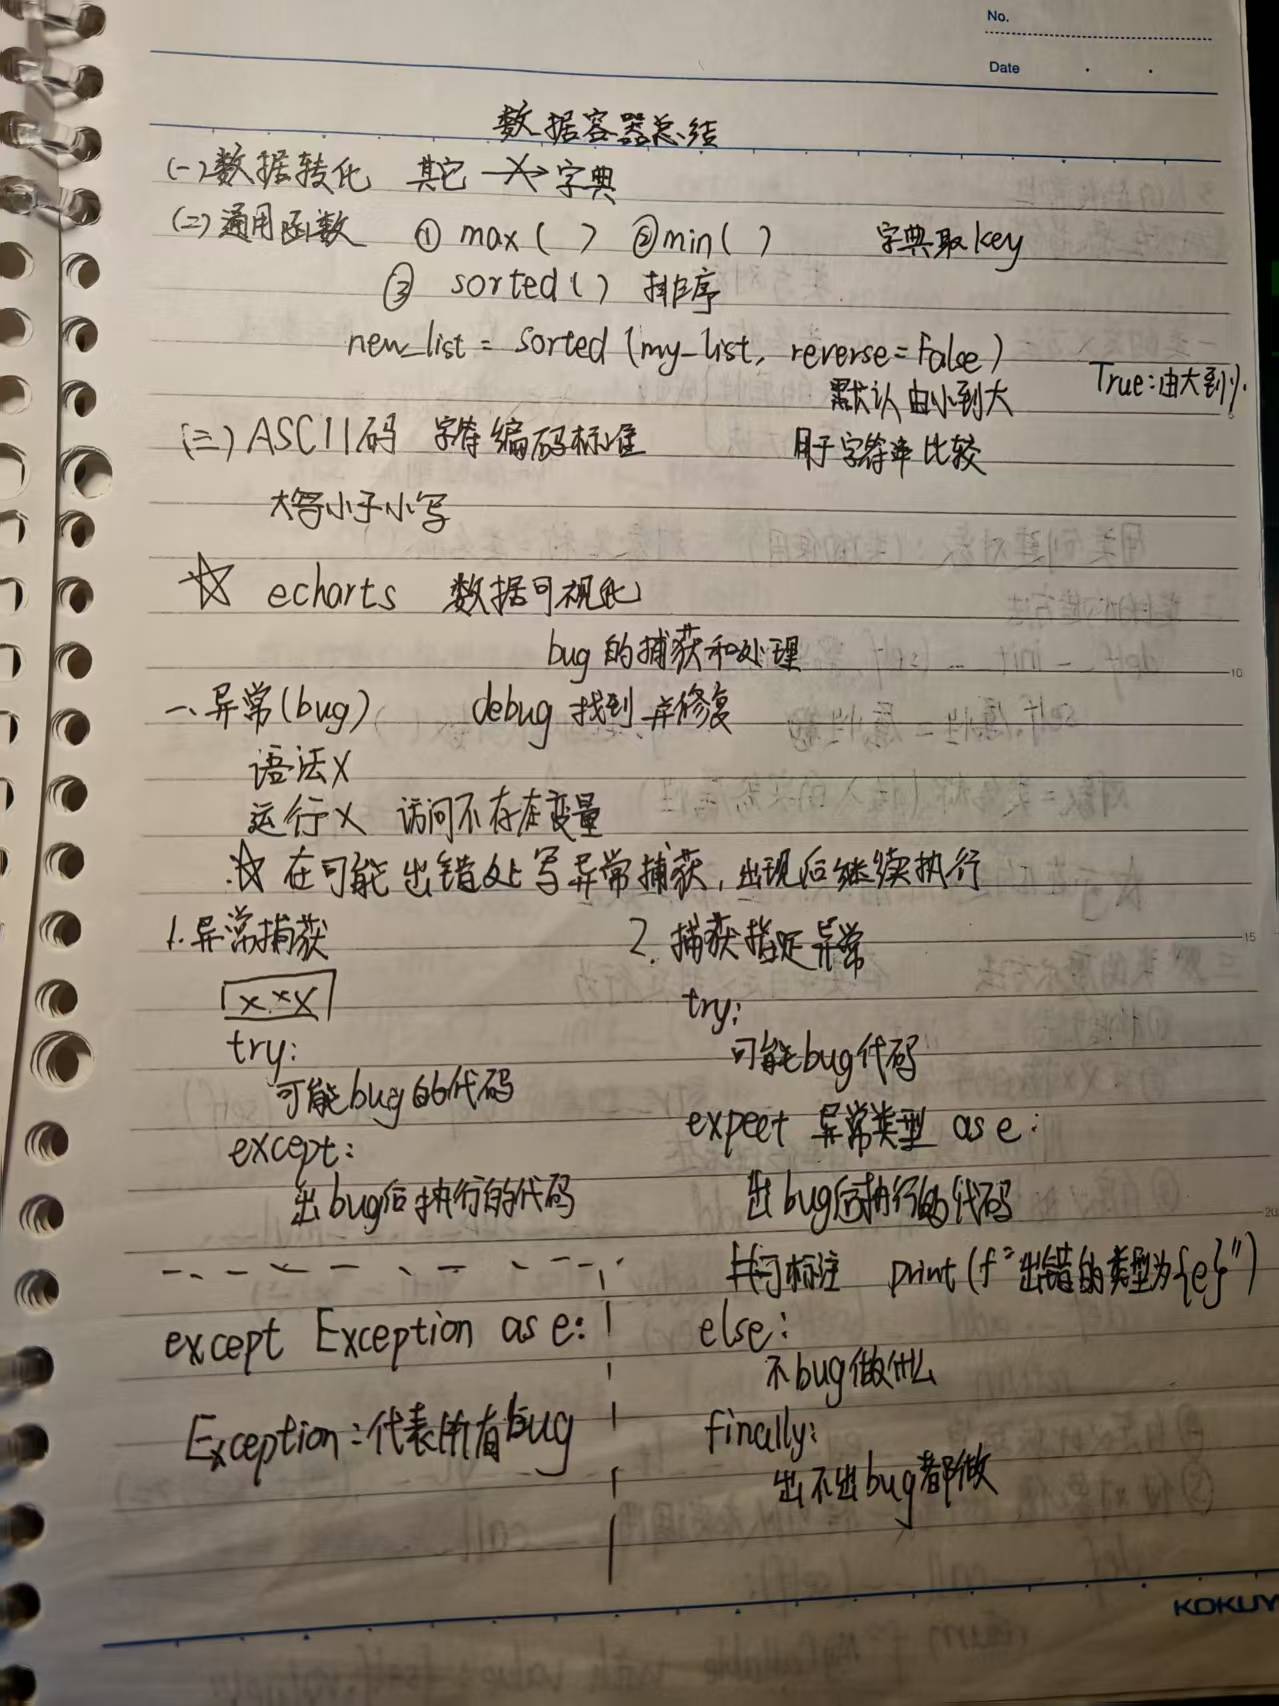 No.
Date
数据容器总结
(一)数据转化 其它 -X-> 字典
(二)通用函数 ① max ( ) ②min ( ) 字典取key
③ sorted ( ) 排序
new_list = sorted (my_list, reverse=False)
默认由小到大 True:由大到小
(三) ASCII码 字符编码标准 用于字符串比较
大写小于小写
☆ echarts 数据可视化
bug的捕获和处理
10
一、异常(bug) debug 找到并修复
语法X
运行X 访问不存在变量
☆ 在可能出错处写异常捕获,出现后继续执行
15
1. 异常捕获
x x x
try:
可能bug的代码
except:
出bug后执行的代码
except Exception as e:
Exception:代表所有bug
2. 捕获指定异常
try:
可能bug代码
expeet 异常类型 as e:
出bug后执行的代码
20
标注 print (f"出错的类型为{e}")
else:
不bug做什么
finally:
出不出bug都做
KOKUY